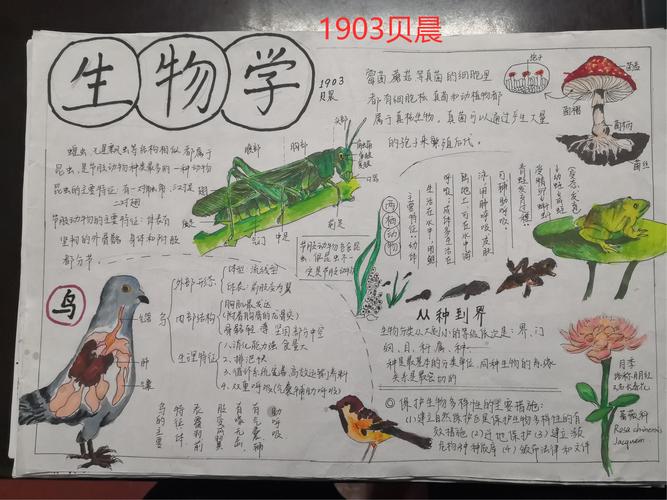 1903贝晨
生物学
1903
贝晨
蝗虫
都属于
昆虫,是节肢动物种类最多的一种动物
昆虫的主要特征:有一对触角,三对足
二对翅
节肢动物的主要特征:体表有
坚韧的外骨骼 身体和附肢
都分节。
头部
胸部
腹部
触角
后足
气门
中足
前足
节肢动物包含昆
虫,但昆虫不
霉菌 蘑菇 等真菌的细胞里
都有细胞核 真菌和动植物都
属于真核生物。真菌可以通过产生大量
的孢子来繁殖后代。
孢子
菌盖
菌褶
菌柄
菌丝
两栖动物
主要特征:幼体
生活在水中,用鳃
呼吸;成体多生活在
陆地上,可在水中游
泳,用肺呼吸,皮肤
可辅助呼吸
青蛙发育过程:
受精卵→蝌蚪
→幼蛙→成蛙
(变态发育)
鸟
气管
肺
气囊
鸟
外部形态
体型:流线型
体表:前肢变为翼
内部结构
胸肌最发达
骨骼轻 薄 坚固
生理特征
1、消化能力强 食量大
2、排泄快
4、双重呼吸(气囊辅助呼吸)
鸟的主要
特征 体
表覆羽 前
肢变翼
有喙无齿
有气囊辅
助呼吸
从种到界
生物分类从大到小的等级依次是:界、门
纲、目、科、属、种。
种是最基本的分类单位,同种生物的亲缘
关系是最密切的
◎保护生物多样性的主要措施:
(1)建立自然保护区是保护生物多样性的有
效措施 (2)迁地保护 (3)建立濒
危物种种质库 (4)颁布法律和文件
月季
蔷薇科
Rosa chinensis
Jacquem